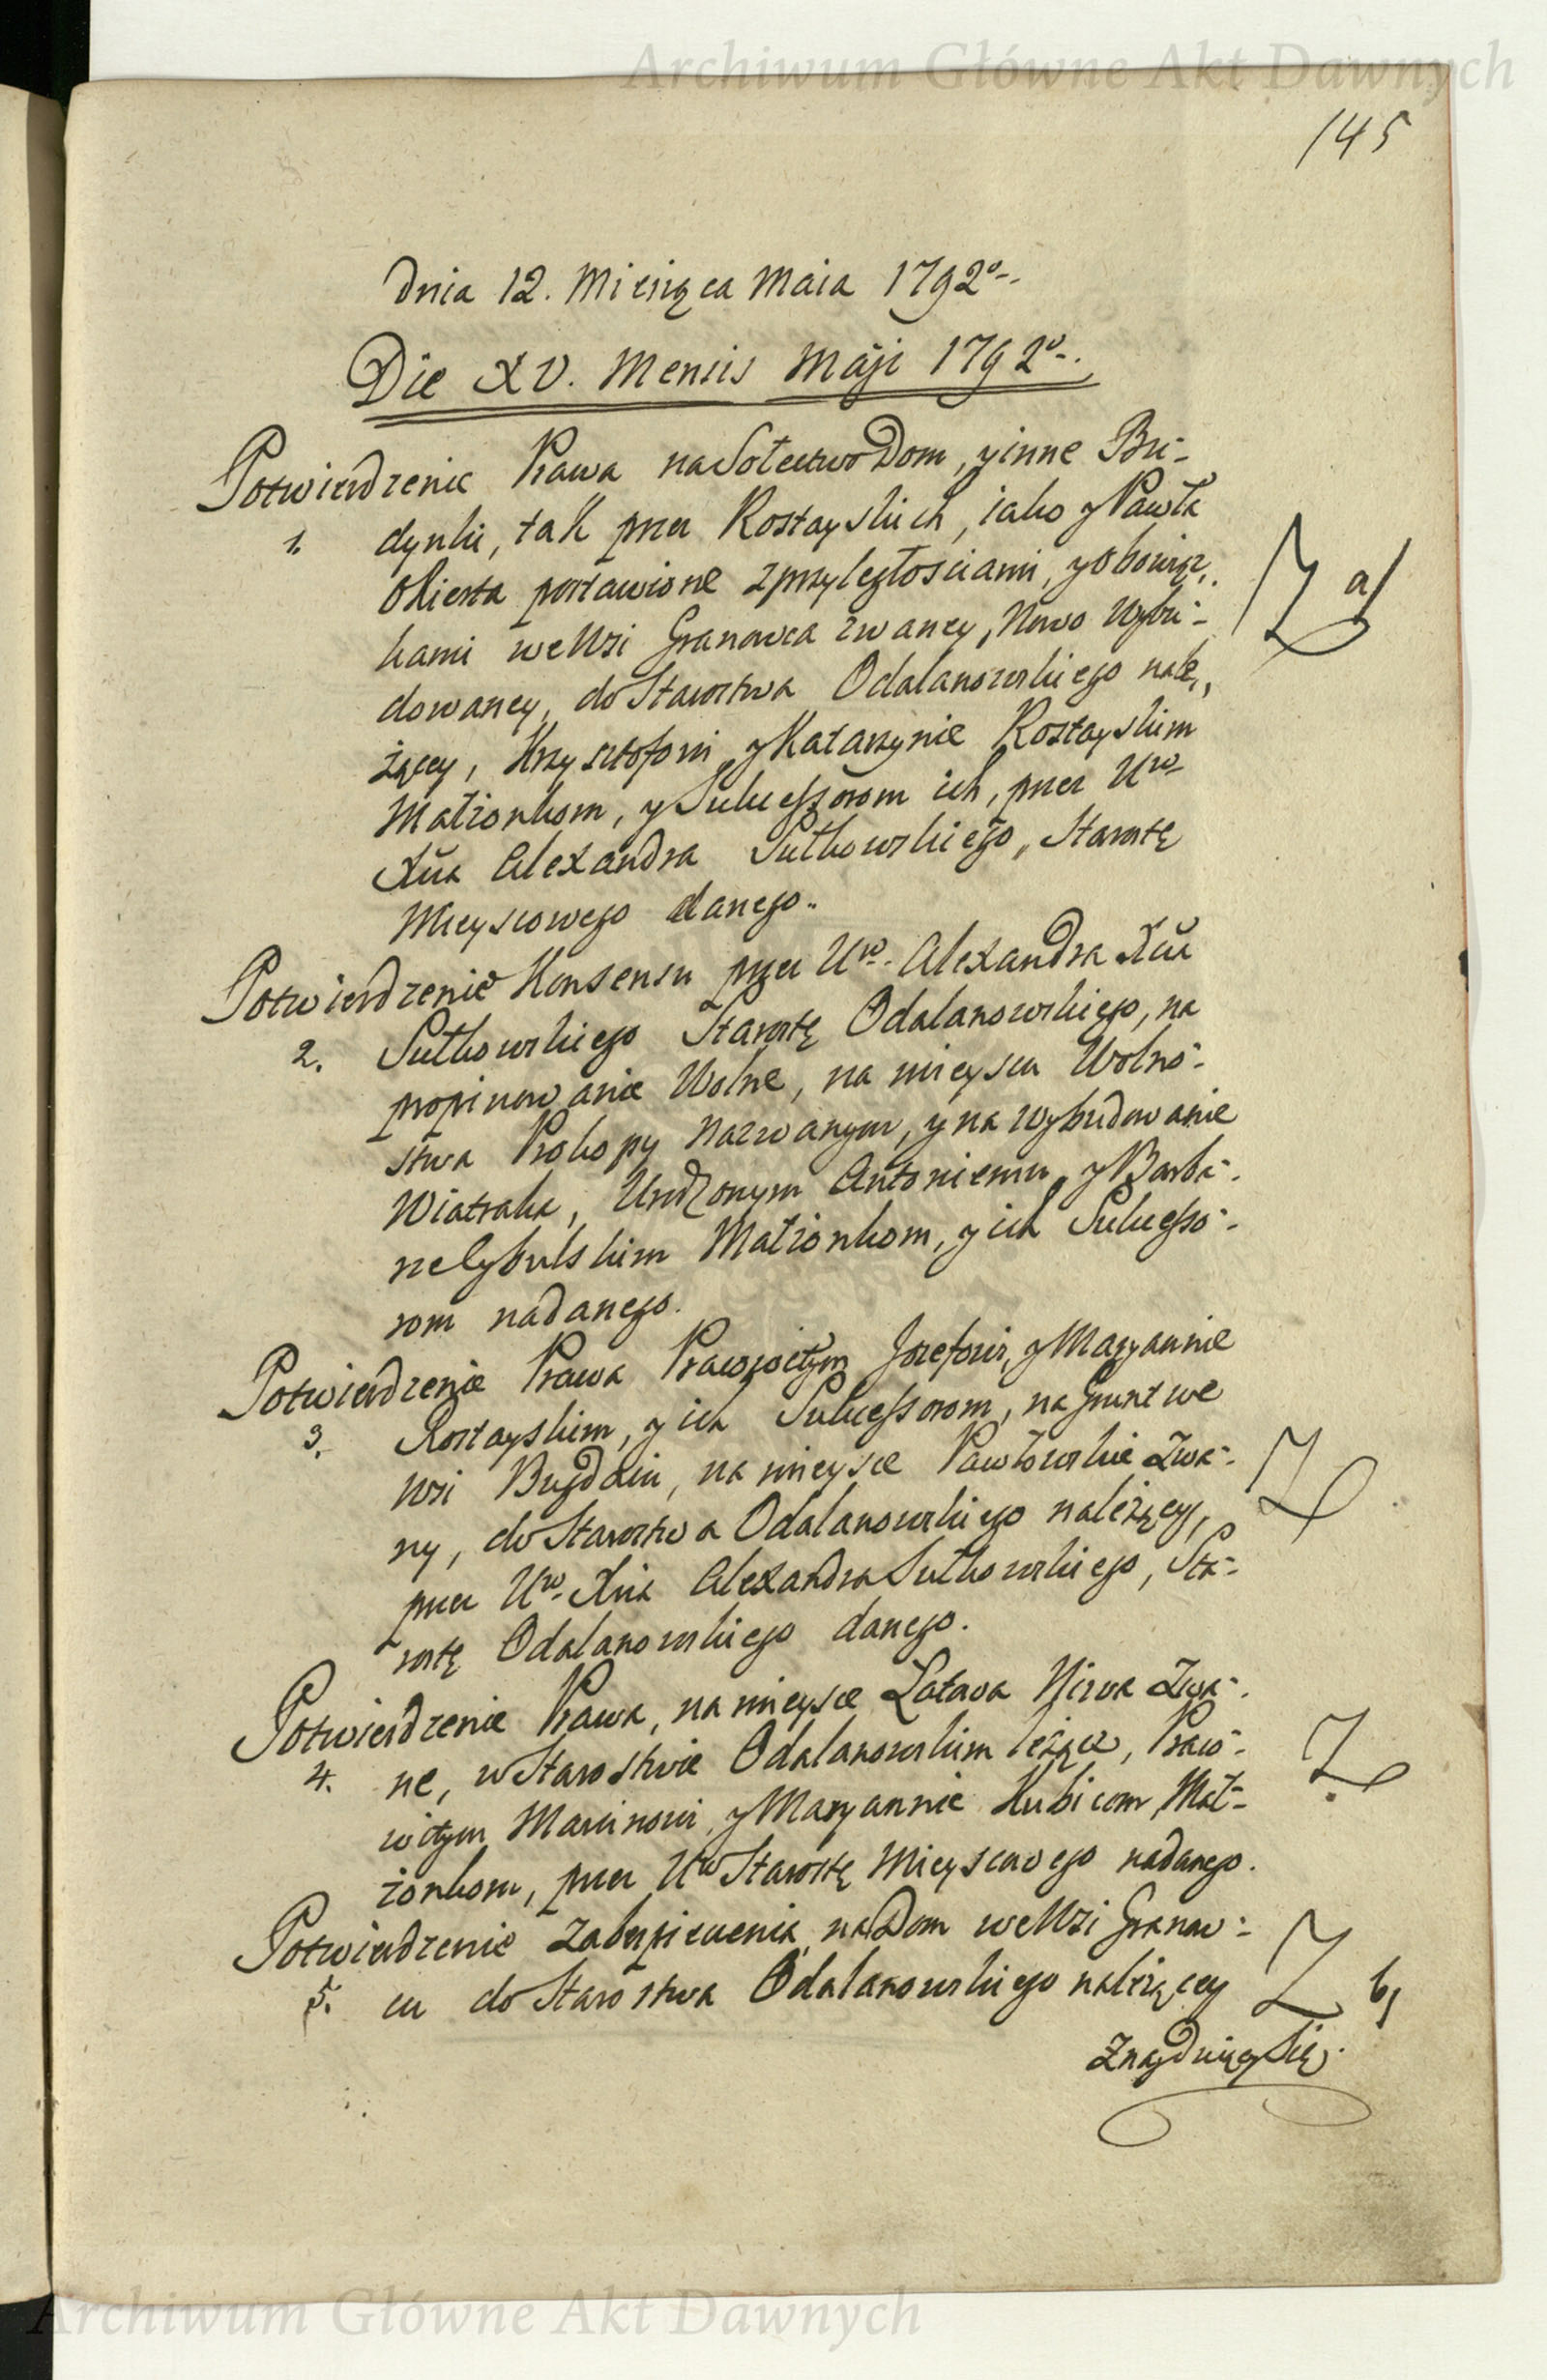 Archiwum Główne Akt Dawnych
145
Dnia 12. Miesiąca Maia 1792º-.
Die XV. Mensis Maji 1792º-.
Potwierdzenie Prawa na Sołectwo Dom, y inne Bu-
1. dynki, tak przez Rostayskich, iako y Pawła
Okienta postawione z przyległościami, y obowiąz,
kami we Wsi Granowca zwaney, Nowo Wybu-
dowaney, do Starostwa Odalanowskiego nale,,
żącey, Krzysztofowi y Katarzynie Rostayskim
Małżonkom, y Sukcessorom ich, przez Uro
Xcia Alexandra Sułkowskiego, Starostę
Mieyscowego danego.
Potwierdzenie Konsensu przez Uro. Alexandra Xcia
2. Sułkowskiego Starostę Odalanowskiego, na
propinowanie Wolne, na mieyscu Wolno-
stwa Prokopy Nazwanym, y na wybudowanie
Wiatraka, Urodzonym Antoniemu, y Barba-
rze Cybulskim Małżonkom, y ich Sukcesso-
rom nadanego.
Potwierdzenie Prawa Prawowitym Jozefowi, y Maryannie
3. Rostayskim, y ich Sukcessorom, na Grunt we
Wsi Bugdaiu, na mieysce Pawłowskie Zwa-
ny, do Starostwa Odalanowskiego należącey,
przez Uro. Xcia Alexandra Sułkowskiego, Sta-
rostę Odalanowskiego danego.
Potwierdzenie Prawa, na mieysce Latawa Niwa Zwa-
4. ne, w Starostwie Odalanowskim leżące, Prawo-
witym Marcinowi, y Maryannie Kubicom Mał-
żonkom, przez Uro Starostę Mieyscowego nadanego.
Potwierdzenie Zabezpieczenia na Dom we Wsi Granow-
5. cu do Starostwa Odalanowskiego należącey
Znayduiącey Się.
a/
b/
Archiwum Główne Akt Dawnych